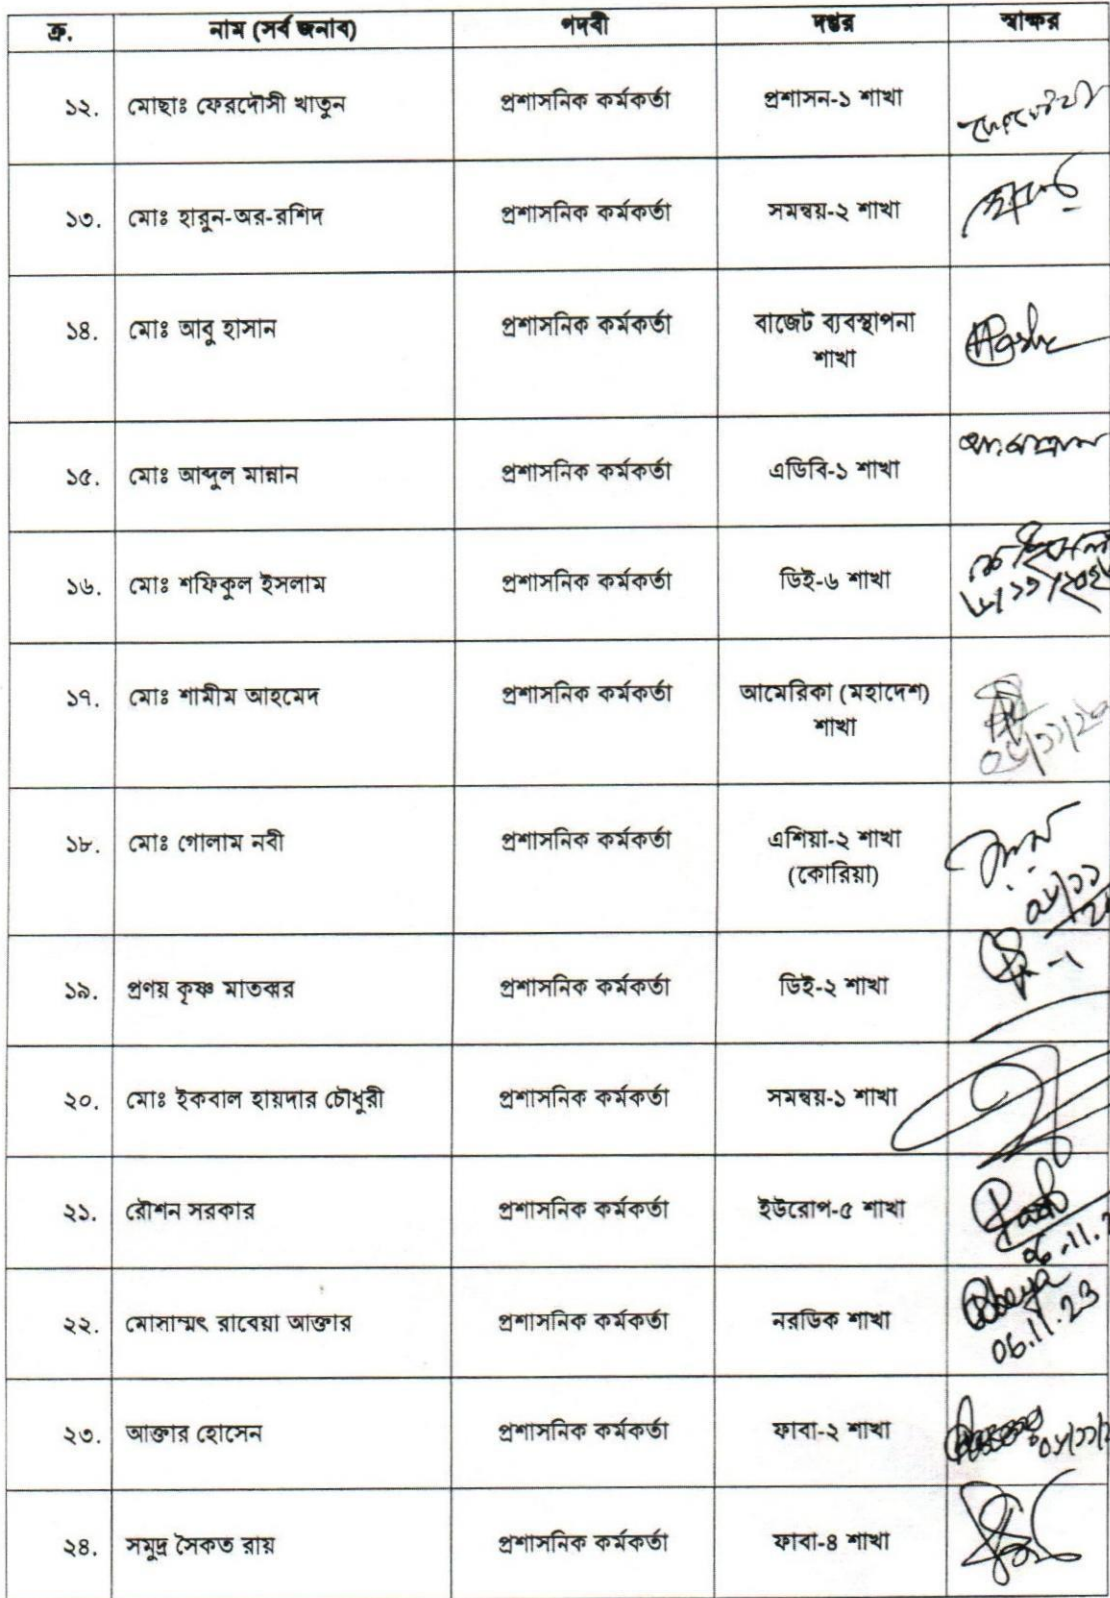 ক্র. নাম (সর্ব জনাব) পদবী দপ্তর স্বাক্ষর
১২. মোছাঃ ফেরদৌসী খাতুন প্রশাসনিক কর্মকর্তা প্রশাসন-১ শাখা
১৩. মোঃ হারুন-অর-রশিদ প্রশাসনিক কর্মকর্তা সমন্বয়-২ শাখা
১৪. মোঃ আবু হাসান প্রশাসনিক কর্মকর্তা বাজেট ব্যবস্থাপনা
শাখা
১৫. মোঃ আব্দুল মান্নান প্রশাসনিক কর্মকর্তা এডিবি-১ শাখা
১৬. মোঃ শফিকুল ইসলাম প্রশাসনিক কর্মকর্তা ডিই-৬ শাখা
১৭. মোঃ শামীম আহমেদ প্রশাসনিক কর্মকর্তা আমেরিকা (মহাদেশ)
শাখা
১৮. মোঃ গোলাম নবী প্রশাসনিক কর্মকর্তা এশিয়া-২ শাখা
(কোরিয়া)
১৯. প্রণয় কৃষ্ণ মাতব্বর প্রশাসনিক কর্মকর্তা ডিই-২ শাখা
২০. মোঃ ইকবাল হায়দার চৌধুরী প্রশাসনিক কর্মকর্তা সমন্বয়-১ শাখা
২১. রৌশন সরকার প্রশাসনিক কর্মকর্তা ইউরোপ-৫ শাখা
06.11.
২২. মোসাম্মৎ রাবেয়া আক্তার প্রশাসনিক কর্মকর্তা নরডিক শাখা
06.11.23
২৩. আক্তার হোসেন প্রশাসনিক কর্মকর্তা ফাবা-২ শাখা
২৪. সমুদ্র সৈকত রায় প্রশাসনিক কর্মকর্তা ফাবা-৪ শাখা